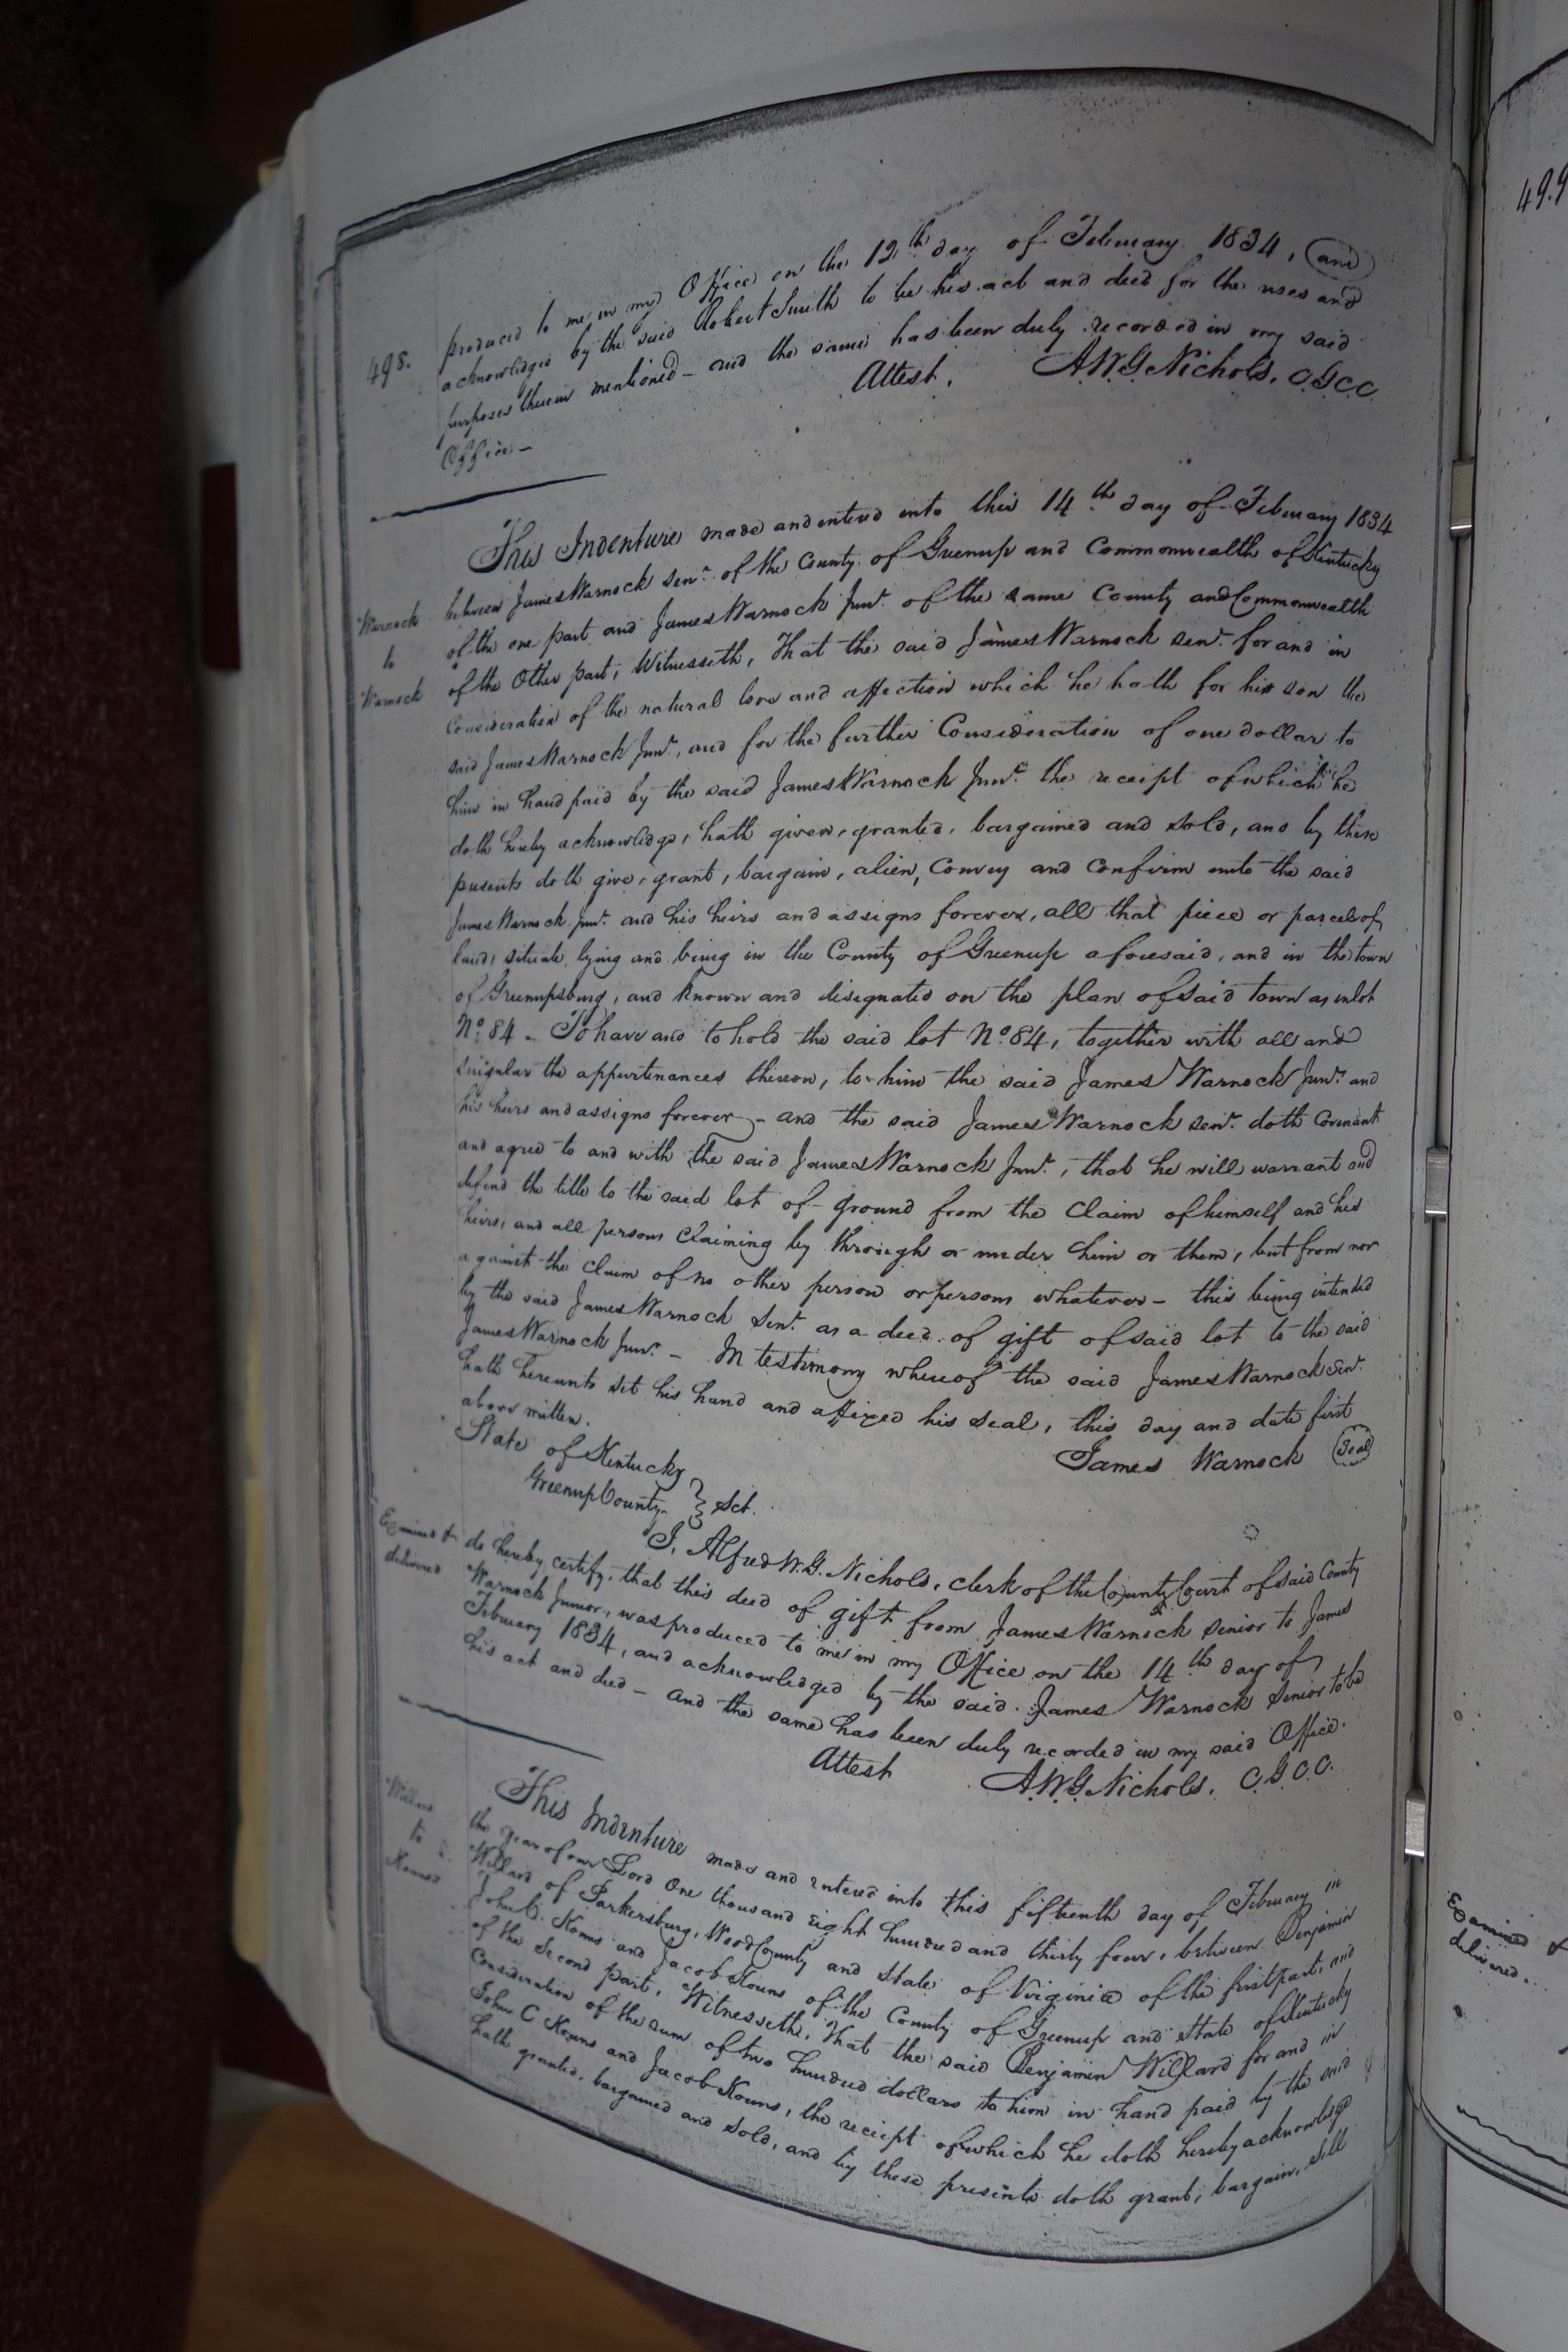 498.
produced to me in my Office on the 12th day of February 1834, and
acknowledged by the said Robert Smith to be his act and deed for the uses and
purposes therein mentioned – and the same has been duly recorded in my said
Office –
Attest, A.W.G. Nichols, C.G.C.C.
This Indenture made and entered into this 14th day of February 1834
Warnock
to
Warnock
between James Warnock senr. of the County of Greenup and Commonwealth of Kentucky
of the one part and James Warnock Junr. of the same County and Commonwealth
of the Other part, Witnesseth, That the said James Warnock senr. for and in
Consideration of the natural love and affection which he hath for his son the
said James Warnock Junr., and for the further Consideration of one dollar to
him in hand paid by the said James Warnock Junr. the receipt of which he
doth hereby acknowledge, hath given, granted, bargained and sold, and by these
presents doth give, grant, bargain, alien, Convey and Confirm unto the said
James Warnock Junr. and his heirs and assigns forever, all that piece or parcel of
land, situate, lying and being in the County of Greenup aforesaid, and in the town
of Greenupsburg, and known and designated on the plan of said town as inlot
No. 84 – To have and to hold the said lot No. 84, together with all and
singular the appurtenances thereon, to him the said James Warnock Junr. and
his heirs and assigns forever – and the said James Warnock senr. doth Covenant
and agree to and with the said James Warnock Junr., that he will warrant and
defend the title to the said lot of ground from the Claim of himself and his
heirs, and all persons Claiming by through or under him or them, but from nor
against the Claim of no other person or persons whatever – this being intended
by the said James Warnock Senr. as a deed of gift of said lot to the said
James Warnock Junr. – In testimony whereof the said James Warnock Senr.
hath hereunto set his hand and affixed his seal, this day and date first
above written.
James Warnock (Seal)
State of Kentucky
Greenup County } Sct.
Examined &
delivered
I, Alfred W.G. Nichols, clerk of the County Court of said County
do hereby certify, that this deed of gift from James Warnock Senior to James
Warnock Junior, was produced to me in my Office on the 14th day of
February 1834, and acknowledged by the said James Warnock Senior to be
his act and deed – and the same has been duly recorded in my said Office.
Attest A.W.G. Nichols, C.G.C.C.
Willard
to
Kouns
This Indenture made and entered into this fifteenth day of February in
the year of our Lord One thousand Eight hundred and thirty four, between Benjamin
Willard of Parkersburg, Wood County and State of Virginia of the first part, and
John C. Kouns and Jacob Kouns of the County of Greenup and State of Kentucky
of the Second part, Witnesseth, That the said Benjamin Willard for and in
Consideration of the sum of two hundred dollars to him in hand paid by the said
John C. Kouns and Jacob Kouns, the receipt of which he doth hereby acknowledge
hath granted, bargained and sold, and by these presents doth grant, bargain, sell
499
Examined &
delivered.